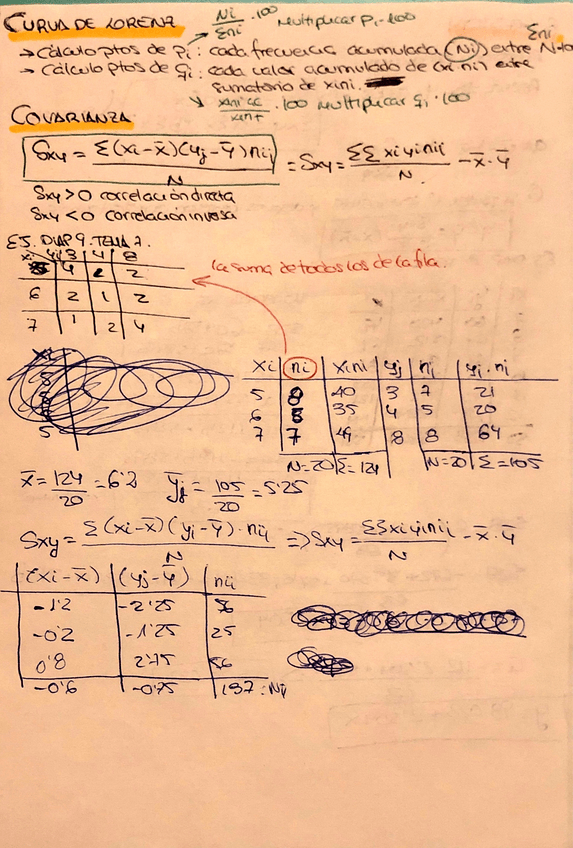 CURVA DE LORENZ Ni/Σni · 100 Multiplicar Pi · 100
→ Cálculo ptos de Pi: cada frecuencia acumulada (Ni) entre N tot Σni
→ Cálculo ptos de qi: cada valor acumulado de (xi·ni) entre
sumatorio de xini.
100 Multiplicar qi · 100
COVARIANZA
Sxy = Σ(xi-x̄)(yj-ȳ)nij / N = Sxy = ΣΣ xi yj nij / N - x̄·ȳ
Sxy > 0 correlación directa
Sxy < 0 correlación inversa
EJ. DIAP 9. TEMA 7.
xi yj 3 4 8
5 4 2 2
6 2 1 2
7 1 2 4
la suma de todos los de la fila.
xi ni xini yj nj yj·nj
5 8 40 3 7 21
6 5 35 4 5 20
7 7 49 8 8 64
N=20 Σ=124 N=20 Σ=105
x̄ = 124/20 = 6'2 ȳj = 105/20 = 5'25
Sxy = Σ(xi-x̄)(yj-ȳ)·nij / N ⇒ Sxy = ΣΣ xi yj nij / N - x̄·ȳ
(xi-x̄) (yj-ȳ) nij
-1'2 -2'25 56
-0'2 -1'25 25
0'8 2'75 56
-0'6 -0'75 137